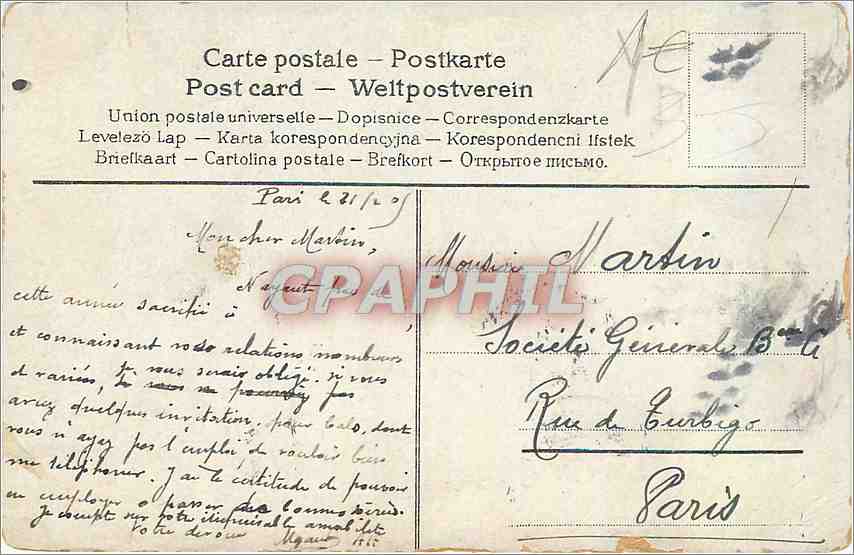 Carte postale – Postkarte
Post card – Weltpostverein
Union postale universelle – Dopisnice – Correspondenzkarte
Levelező Lap – Karta korespondencyjna – Korespondencni lístek
Briefkaart – Cartolina postale – Brefkort – Открытое письмо.
Paris le 21/2 05
Mon cher Martin,
N'ayant pas
cette année sacrifié à
et connaissant vos relations nombreuses
et variées, je vous serais obligé, si vous
avez quelques invitations pour bals, dont
vous n'ayez pas l'emploi, de vouloir bien
me téléphoner. J'ai la certitude de pouvoir
en employer à passer de bonnes
Je compte sur votre inépuisable amabilité
Votre dévoué
Monsieur Martin
Société Générale
Rue de Turbigo
Paris
CPAPHIL